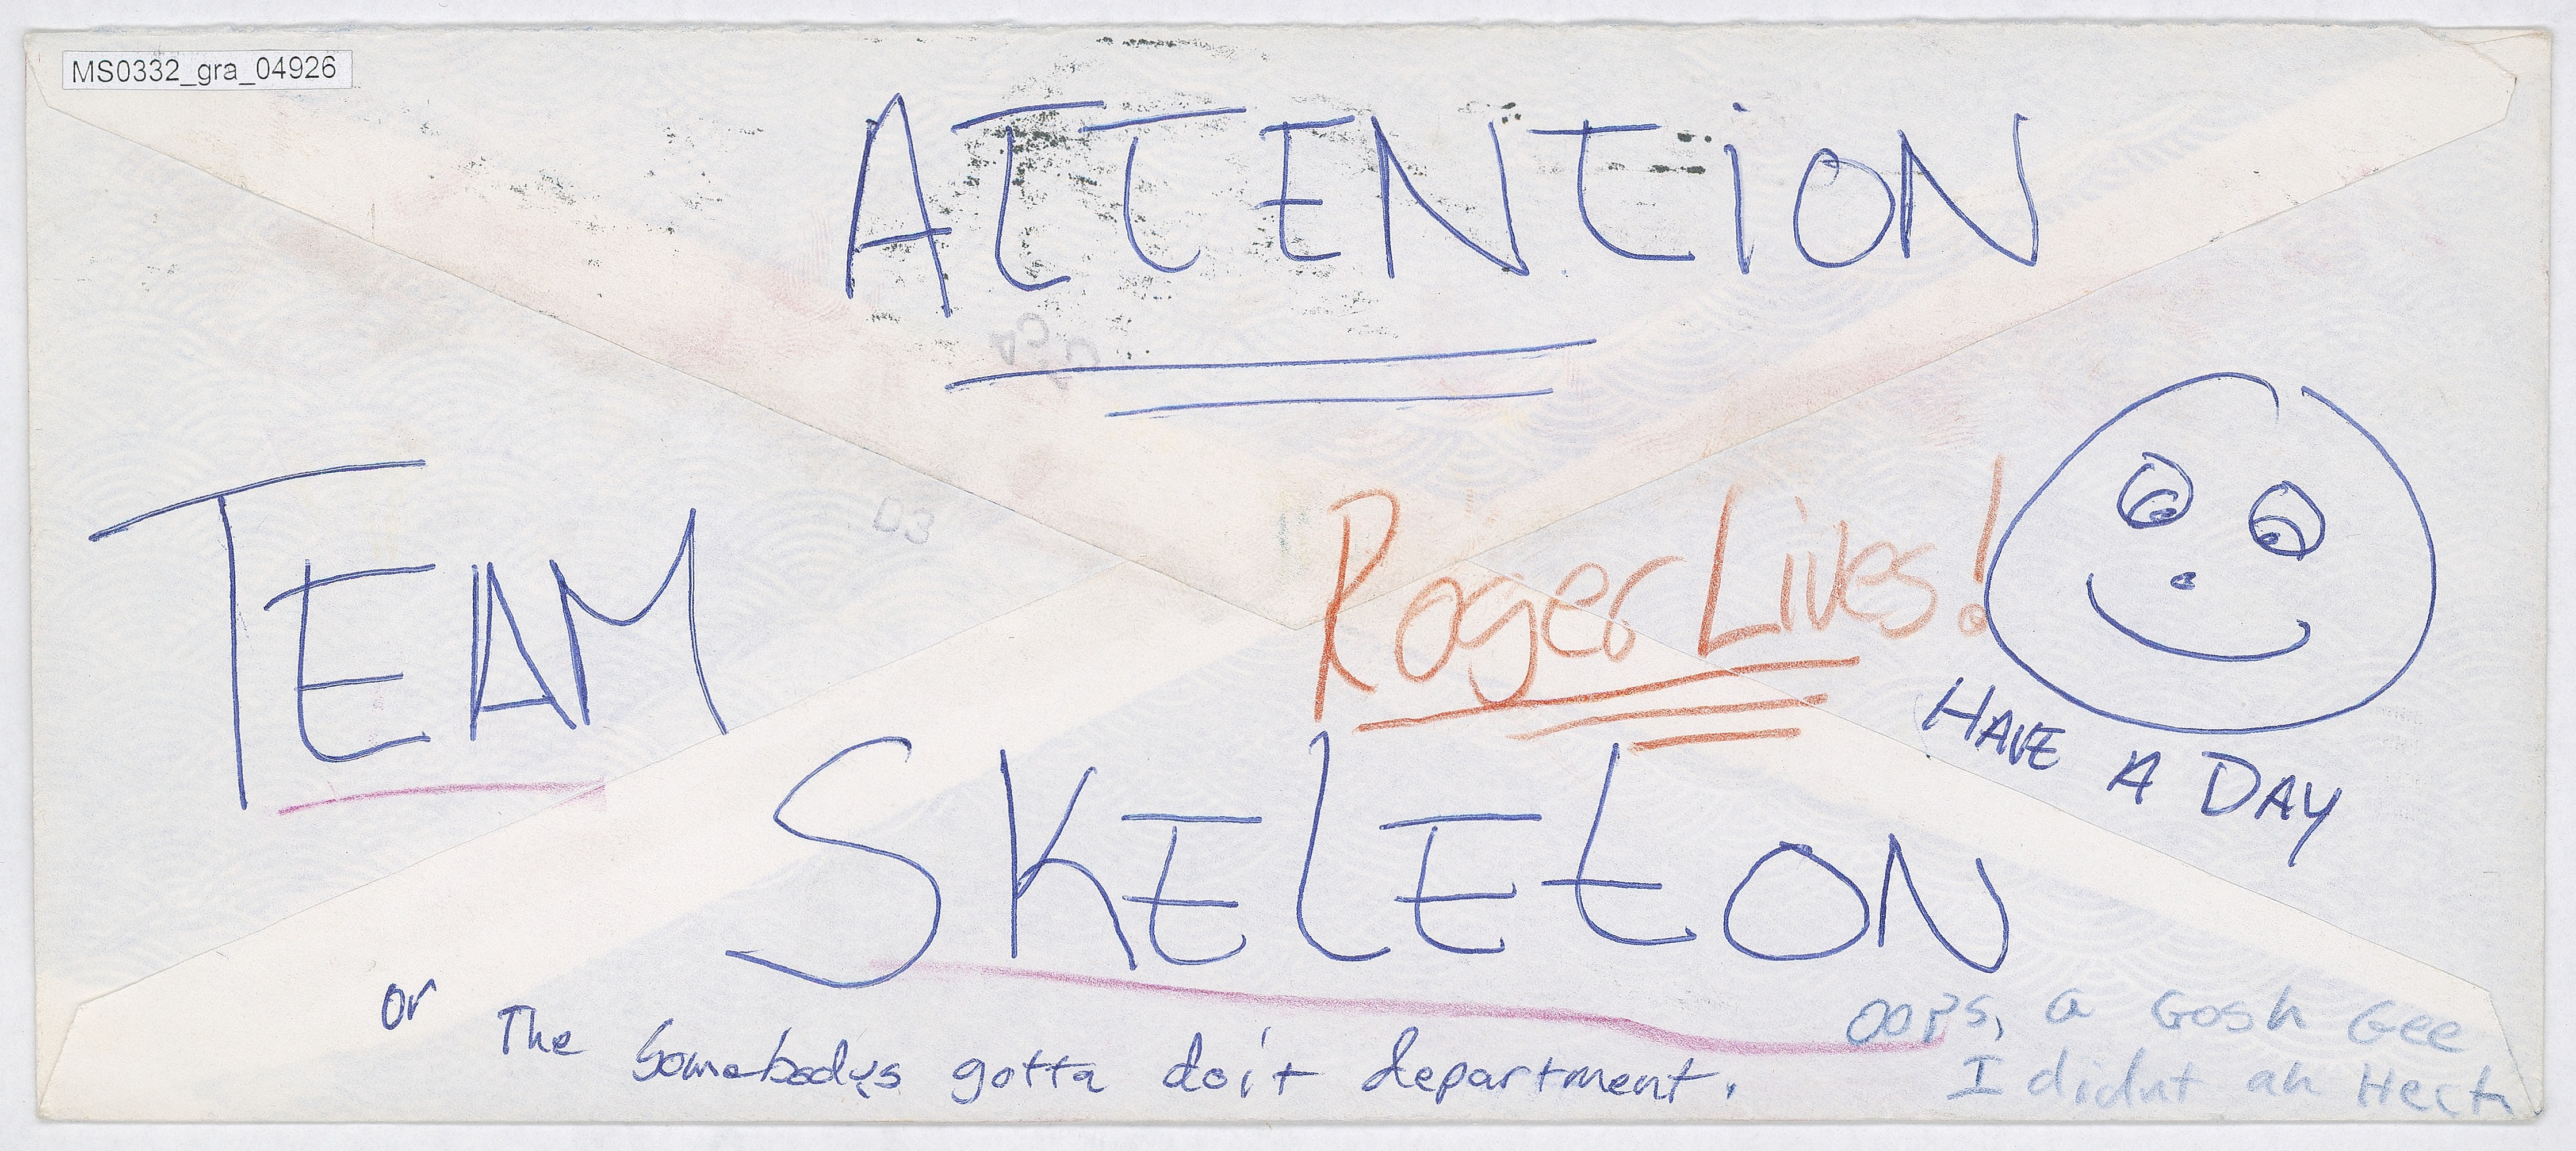 MS0332_gra_04926
ATTENTION
TEAM
Roger Lives!
HAVE A DAY
SKELETON
or The Somebodys gotta do it department.
OOPS, a Gosh Gee
I didnt ah Heck
D3